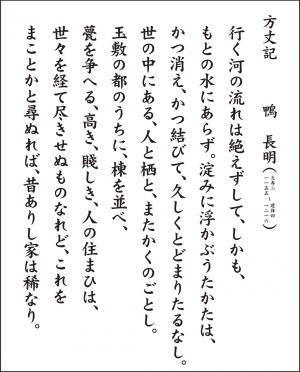 方丈記　鴨　長明（久寿二 一一五五 ― 建保四 一二一六）
行く河の流れは絶えずして、しかも、
もとの水にあらず。淀みに浮かぶうたかたは、
かつ消え、かつ結びて、久しくとどまりたるなし。
世の中にある、人と栖と、またかくのごとし。
玉敷の都のうちに、棟を並べ、
甍を争へる、高き、賤しき、人の住まひは、
世々を経て尽きせぬものなれど、これを
まことかと尋ぬれば、昔ありし家は稀なり。